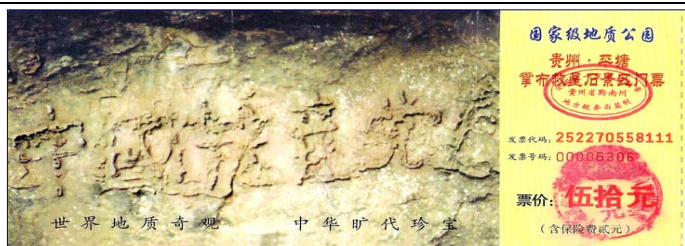 世界地质奇观
中华旷代珍宝
国家级地质公园
贵州·平塘
掌布救星石景区门票
贵州省黔南州
地方税务局监制
发票代码：252270558111
发票号码：00006306
票价：伍拾元
（含保险费贰元）